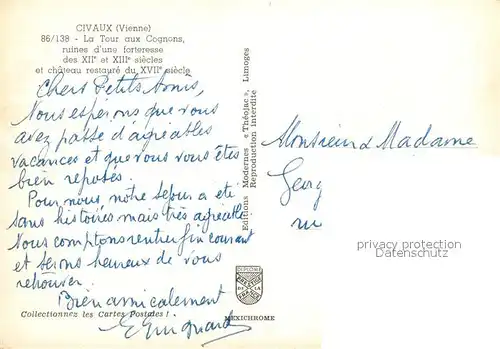 CIVAUX (Vienne)
86/138 - La Tour aux Cognons,
ruines d'une forteresse
des XIIe et XIIIe siècles
et château restauré du XVIIe siècle
Chers Petits Amis,
Nous espérons que vous
avez passé d'agréables
vacances et que vous vous êtes
bien reposés.
Pour nous notre séjour a été
sans histoires mais très agréable
Nous comptons rentrer fin courant
et serons heureux de vous
retrouver.
Bien amicalement
Collectionnez les Cartes Postales !
Editions Modernes « Théojac », Limoges
Reproduction interdite
DIPLOME
MEXICHROME
Monsieur & Madame
Georg
privacy protection
Datenschutz